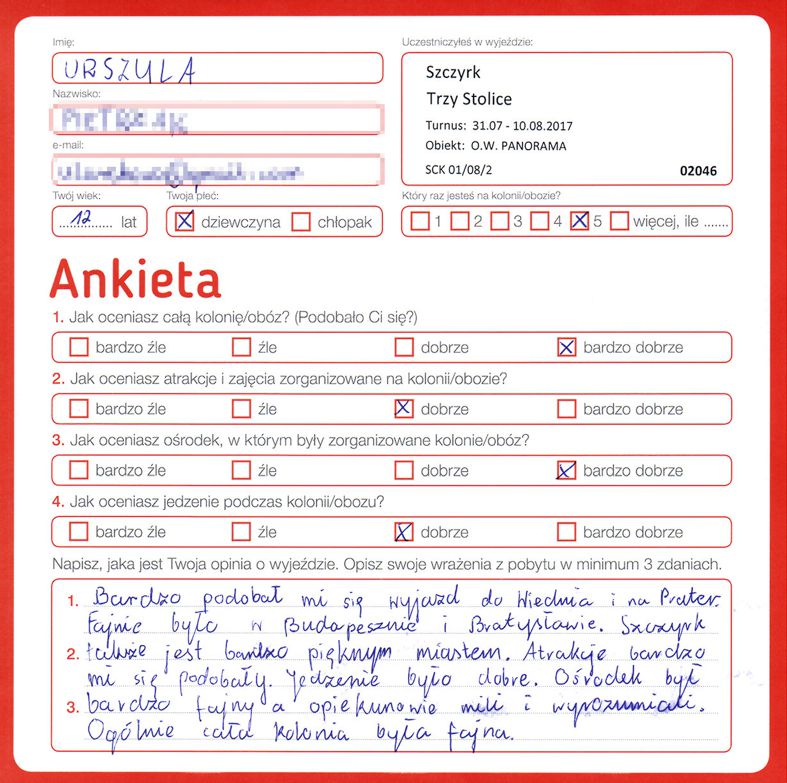 Imię:
URSZULA
Nazwisko:
e-mail:
Twój wiek:
12 lat
Twoja płeć:
dziewczyna chłopak
Uczestniczyłeś w wyjeździe:
Szczyrk
Trzy Stolice
Turnus: 31.07 - 10.08.2017
Obiekt: O.W. PANORAMA
SCK 01/08/2 02046
Który raz jesteś na kolonii/obozie?
1 2 3 4 5 więcej, ile .......
Ankieta
1. Jak oceniasz całą kolonię/obóz? (Podobało Ci się?)
bardzo źle źle dobrze bardzo dobrze
2. Jak oceniasz atrakcje i zajęcia zorganizowane na kolonii/obozie?
bardzo źle źle dobrze bardzo dobrze
3. Jak oceniasz ośrodek, w którym były zorganizowane kolonie/obóz?
bardzo źle źle dobrze bardzo dobrze
4. Jak oceniasz jedzenie podczas kolonii/obozu?
bardzo źle źle dobrze bardzo dobrze
Napisz, jaka jest Twoja opinia o wyjeździe. Opisz swoje wrażenia z pobytu w minimum 3 zdaniach.
1. Bardzo podobał mi się wyjazd do Wiednia i na Prater.
Fajnie było w Budapesznie i Bratysławie. Szczyrk
2. także jest bardzo pięknym miastem. Atrakcje bardzo
mi się podobały. Jedzenie było dobre. Ośrodek był
3. bardzo fajny a opiekunowie mili i wyrozumiali.
Ogólnie cała kolonia była fajna.